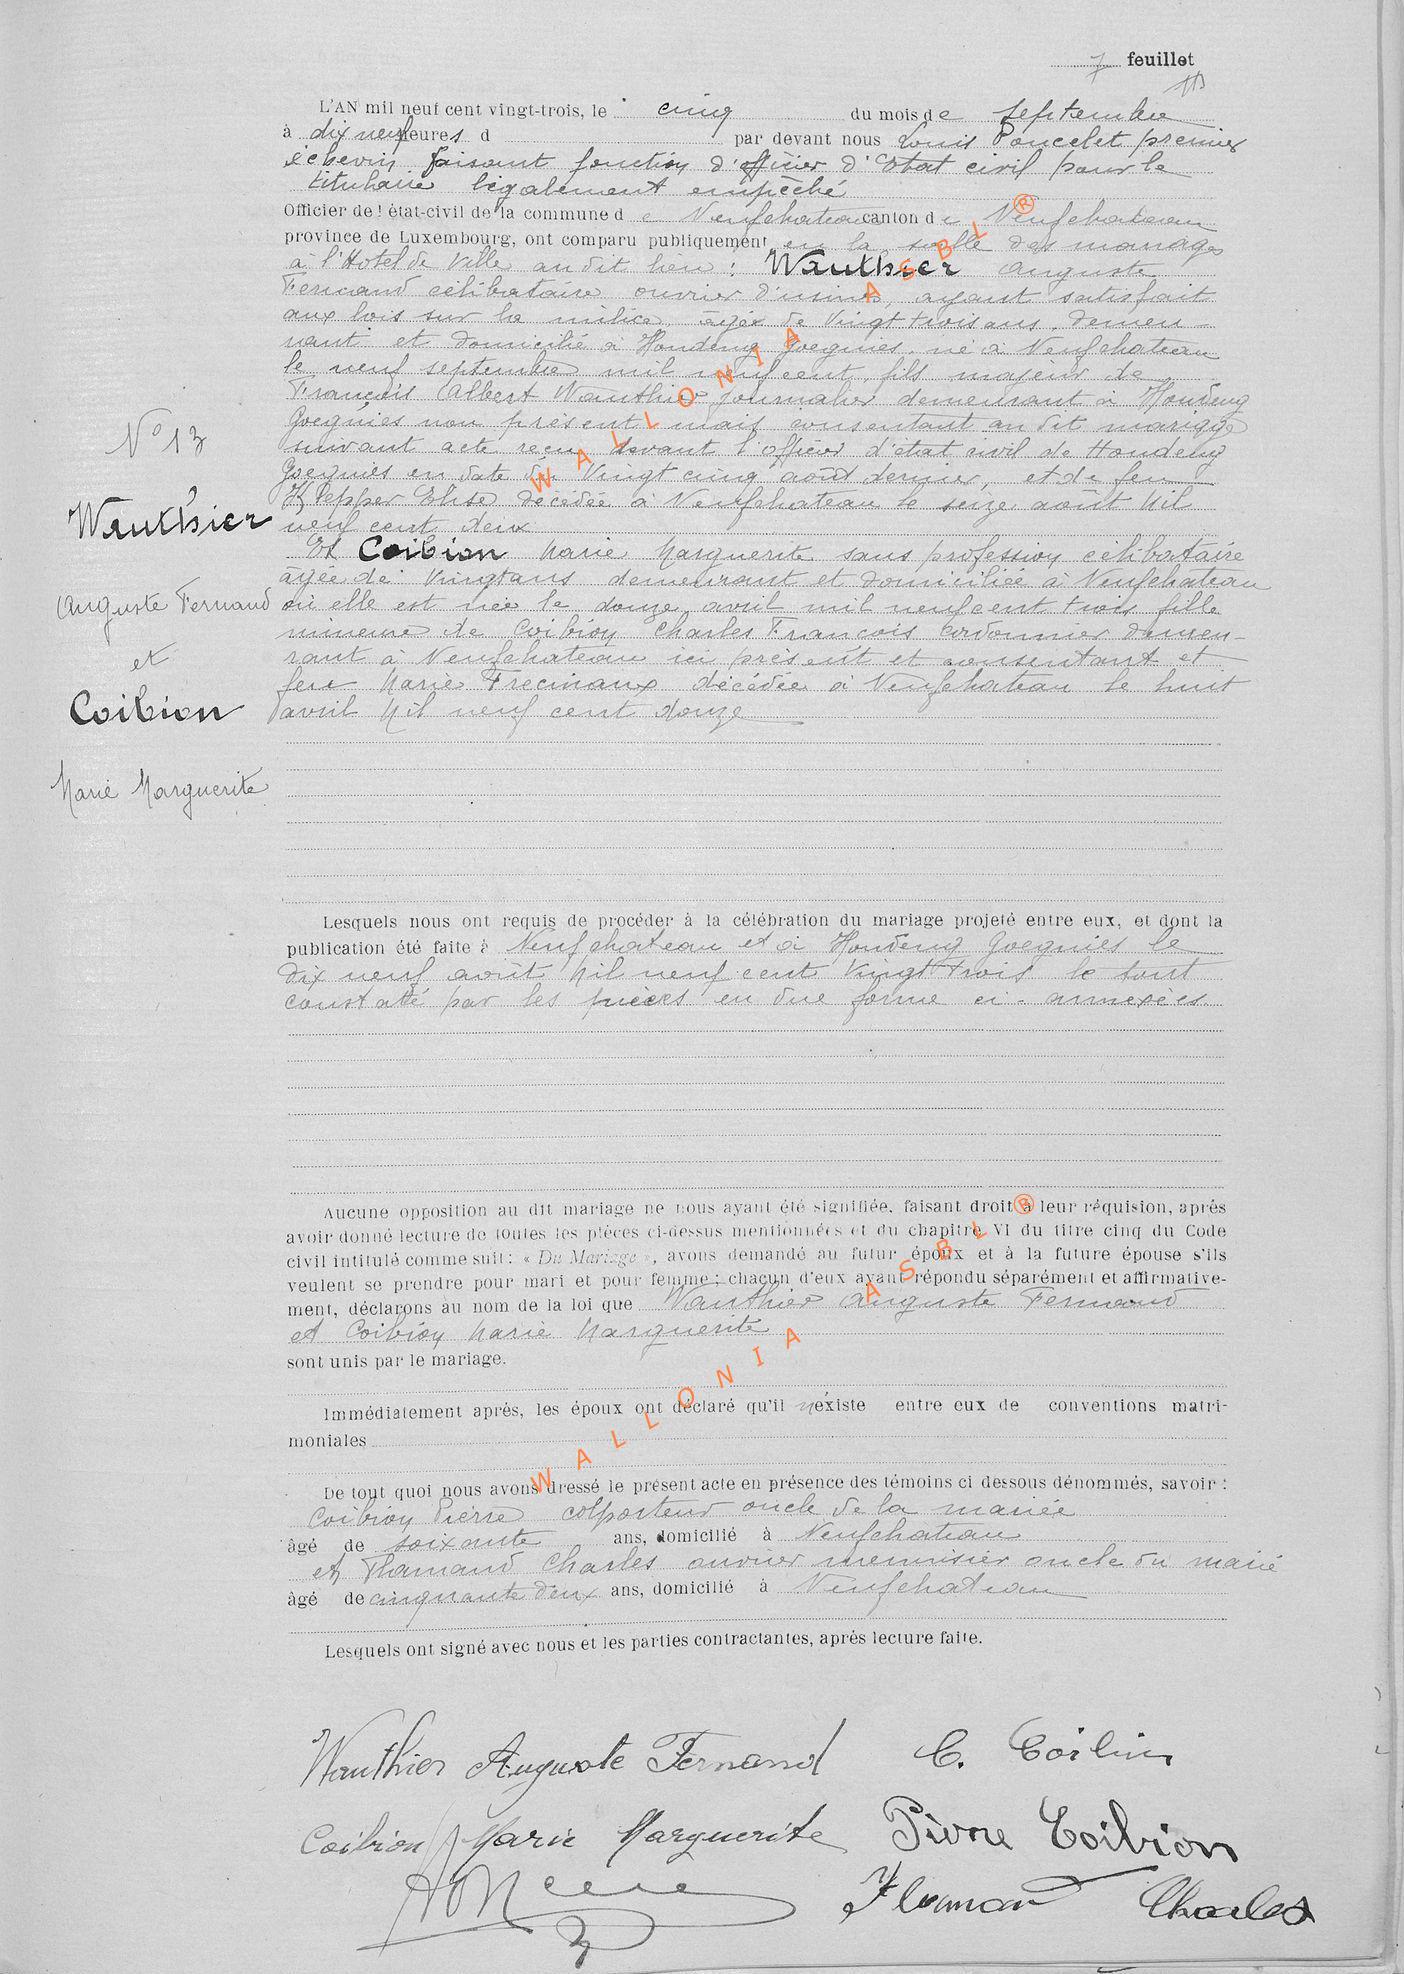 7 feuillet
L'AN mil neuf cent vingt-trois, le cinq du mois de septembre
à dix neuf heures d par devant nous Louis Poncelet premier
échevin faisant fonction d'officier d'Etat civil pour le
titulaire légalement empêché
Officier de l état-civil de la commune de Neufchateau canton de Neufchateau
province de Luxembourg, ont comparu publiquement en la salle des mariages
à l'Hotel de Ville au dit lieu : Wauthier Auguste
Fernand célibataire ouvrier d'usines, ayant satisfait
aux lois sur la milice, âgé de vingt trois ans, demeu-
rant et domicilié à Houdeng Goegnies, né à Neufchateau
le neuf septembre mil neuf cent, fils majeur de
François Albert Wauthier journalier demeurant à Houdeng
Goegnies non présent mais consentant au dit mariage
suivant acte reçu devant l'officier d'état civil de Houdeng
Goegnies en date du vingt cinq août dernier, et de feu
Klepper Elise décédée à Neufchateau le seize août mil
neuf cent deux
Et Coibion Marie Marguerite sans profession célibataire
âgée de vingt ans demeurant et domiciliée à Neufchateau
où elle est née le douze avril mil neuf cent trois fille
mineure de Coibion Charles François cordonnier demeu-
rant à Neufchateau ici présent et consentant et
feue Marie Frecinaux décédée à Neufchateau le huit
avril mil neuf cent douze
N° 13
Wauthier
Auguste Fernand
et
Coibion
Marie Marguerite
Lesquels nous ont requis de procéder à la célébration du mariage projeté entre eux, et dont la
publication été faite à Neufchateau et à Houdeng Goegnies le
dix neuf août mil neuf cent vingt trois le tout
constaté par les pièces en due forme ci-annexées.
Aucune opposition au dit mariage ne nous ayant été signifiée, faisant droit à leur réquision, après
avoir donné lecture de toutes les pièces ci-dessus mentionnées et du chapitre VI du titre cinq du Code
civil intitulé comme suit : « Du Mariage », avons demandé au futur époux et à la future épouse s'ils
veulent se prendre pour mari et pour femme ; chacun d'eux ayant répondu séparément et affirmative-
ment, déclarons au nom de la loi que Wauthier Auguste Fernand
et Coibion Marie Marguerite
sont unis par le mariage.
Immédiatement après, les époux ont déclaré qu'il n'existe entre eux de conventions matri-
moniales
De tout quoi nous avons dressé le présent acte en présence des témoins ci dessous dénommés, savoir :
Coibion Pierre colporteur oncle de la mariée
âgé de soixante ans, domicilié à Neufchateau
et Flamand Charles ouvrier menuisier oncle du marié
âgé de cinquante deux ans, domicilié à Neufchateau
Lesquels ont signé avec nous et les parties contractantes, après lecture faite.
Wauthier Auguste Fernand C. Coibion
Coibion Marie Marguerite Pierre Coibion
Flamand Charles
WALLONIA ASBL ®
WALLONIA ASBL ®